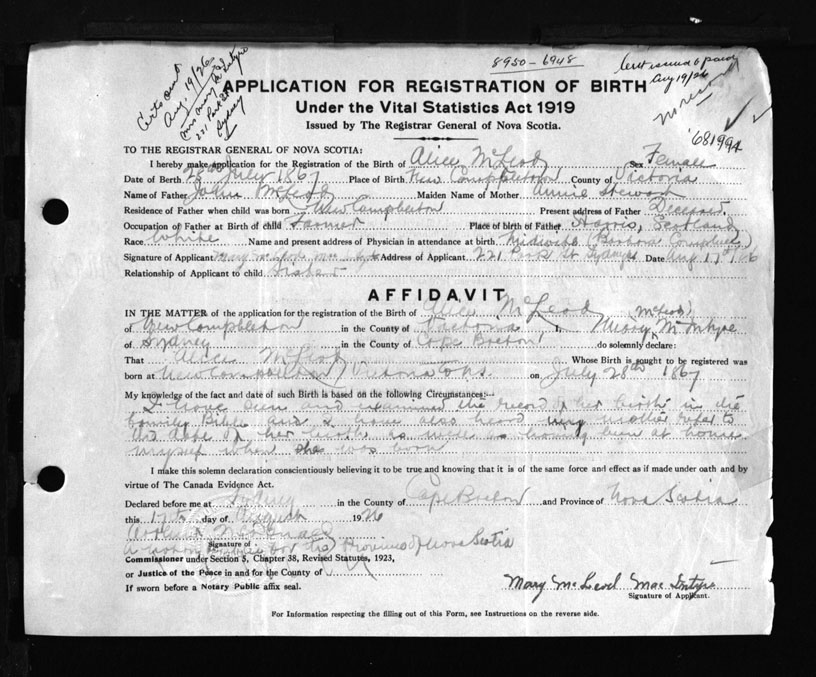 8950-6948
Cert sent
Aug. 19/26
Mrs Mary Mc Intyre
221 Park St
Sydney
Cert issued & paid
Aug 19/26
681994
APPLICATION FOR REGISTRATION OF BIRTH
Under the Vital Statistics Act 1919
Issued by The Registrar General of Nova Scotia.
TO THE REGISTRAR GENERAL OF NOVA SCOTIA:
I hereby make application for the Registration of the Birth of Alice McLeod Sex Female
Date of Birth 28th July 1867 Place of Birth New Campbelton County of Victoria
Name of Father John McLeod Maiden Name of Mother Annie Stewart
Residence of Father when child was born New Campbelton Present address of Father Deceased
Occupation of Father at Birth of child Farmer Place of birth of Father Harris, Scotland
Race White Name and present address of Physician in attendance at birth Midwife (Barbara
Signature of Applicant Mary McLeod Mac Intyre Address of Applicant 221 Park St Sydney Date Aug 17th/26
Relationship of Applicant to child Sister
AFFIDAVIT
IN THE MATTER of the application for the registration of the Birth of Alice McLeod
of New Campbelton in the County of Victoria I, Mary (McLeod) McIntyre
of Sydney in the County of Cape Breton do solemnly declare:
That Alice McLeod Whose Birth is sought to be registered was
born at New Campbelton, Victoria Co. N.S. on July 28th 1867
My knowledge of the fact and date of such Birth is based on the following Circumstances:—
I have seen and examined the record of her birth in the
family Bible and I have also heard my mother refer to
the date of her birth as well as having been at home
myself when she was born
I make this solemn declaration conscientiously believing it to be true and knowing that it is of the same force and effect as if made under oath and by
virtue of The Canada Evidence Act.
Declared before me at Sydney in the County of Cape Breton and Province of Nova Scotia
this 17th day of August 1926
Signature of
A Notary Public for the Province of Nova Scotia
Commissioner under Section 5, Chapter 38, Revised Statutes, 1923,
or Justice of the Peace in and for the County of
If sworn before a Notary Public affix seal.
Mary McLeod Mac Intyre
Signature of Applicant.
For Information respecting the filling out of this Form, see Instructions on the reverse side.